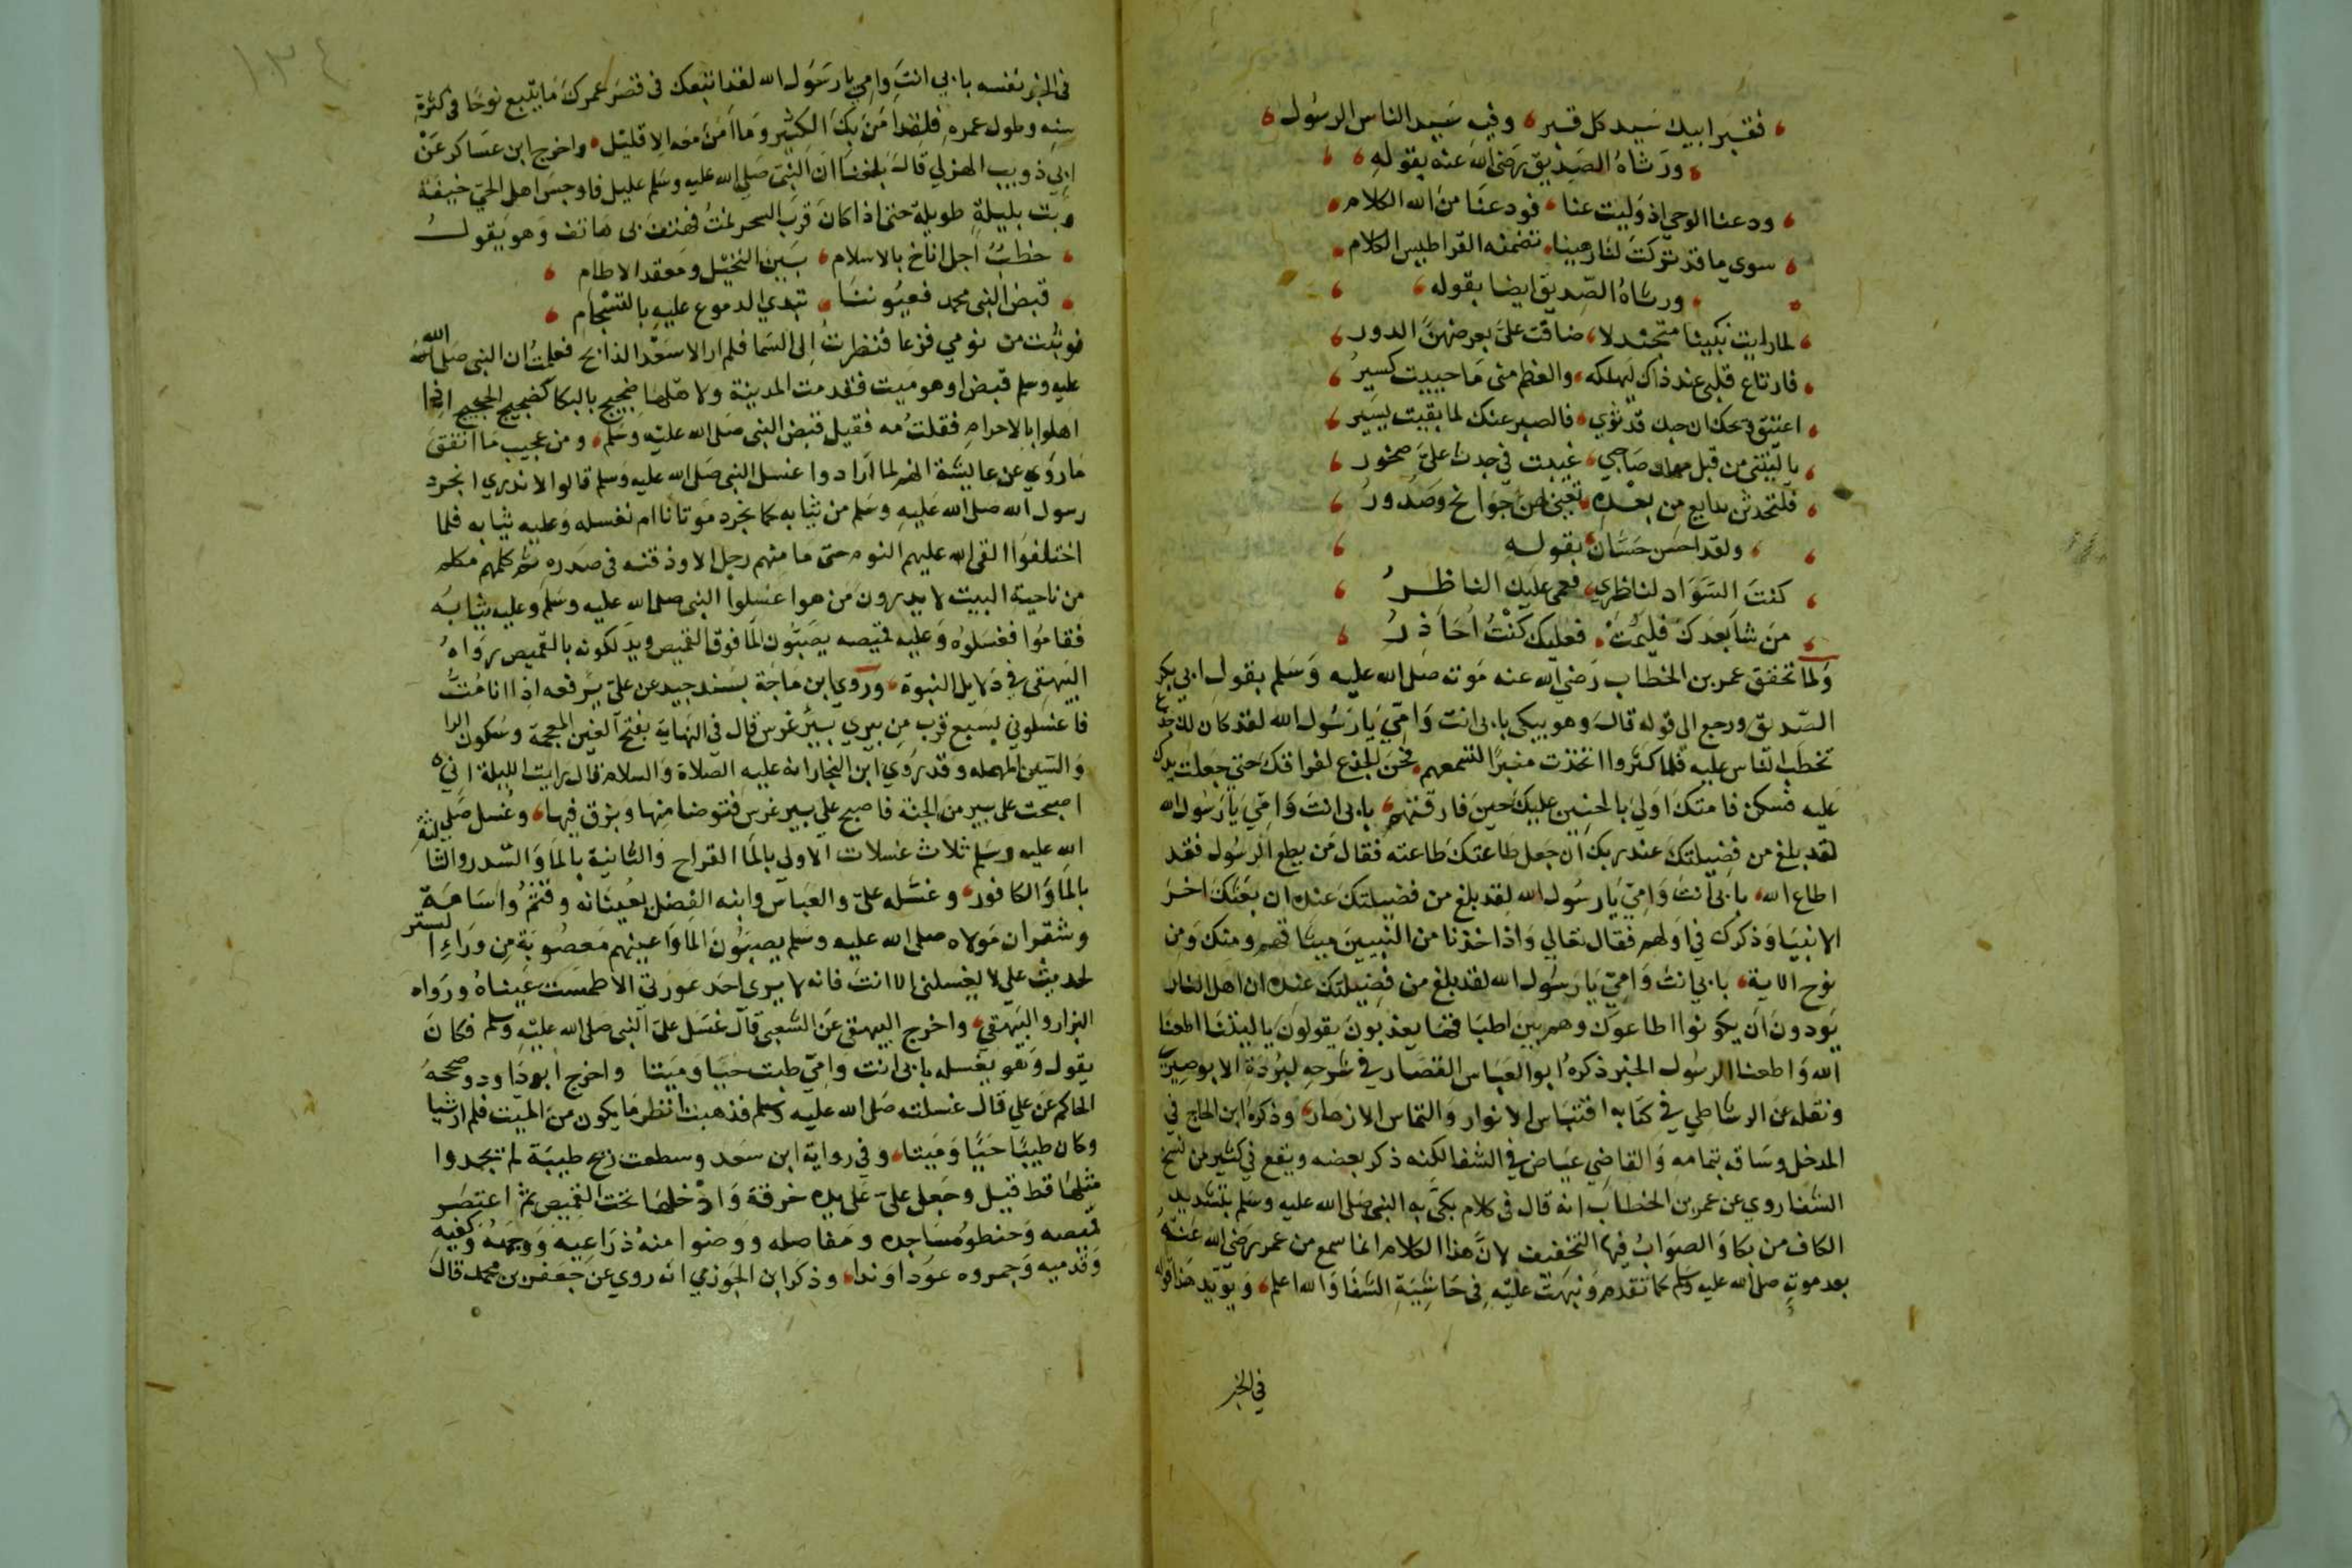 فقبر ابيك سيد كل قبر وفيه سيد الناس الرسول
ورثاه الصديق رضي الله عنه بقوله
ودعنا الوحي اذ وليت عنا فودعنا من الله الكلام
سوي ما قد تركت لنا رهينا تضمنه القراطيس الكلام
ورثاه الصديق ايضا بقوله
لما رايت نبينا متجندلا ضاقت علي بعرضهن الدور
فارتاع قلبي عند ذاك لهلكه والعظم مني ما حييت كسير
اعتيق ويحك ان حبك قد ثوي فالصبر عنك لما بقيت يسير
يا ليتني من قبل مهلك صاحبي غيبت في جدث علي صخور
فلتحدثن بدايع من بعده تعيى لهن جوانح وصدور
ولقد احسن حسان بقوله
كنت السواد لناظري فعمى عليك الناظر
من شا بعدك فليمت فعليك كنت احاذر
ولما تحقق عمر بن الخطاب رضي الله عنه موته صلى الله عليه وسلم بقول ابي بكر
الصديق ورجع الى قوله قال وهو يبكي بابي انت وامي يا رسول الله لقد كان لك جذع
تخطب الناس عليه فلما كثروا اتخذت منبرا لتسمعهم فحن الجذع لفراقك حتى جعلت يدك
عليه فسكن فامتك اولي بالحنين عليك حين فارقتهم بابي انت وامي يا رسول الله
لقد بلغ من فضيلتك عند ربك ان جعل طاعتك طاعته فقال من يطع الرسول فقد
اطاع الله بابي انت وامي يا رسول الله لقد بلغ من فضيلتك عنده ان بعثك اخر
الانبيا وذكرك في اولهم فقال تعالي واذ اخذنا من النبيين ميثاقهم ومنك ومن
نوح الاية بابي انت وامي يا رسول الله لقد بلغ من فضيلتك عنده ان اهل النار
يودون ان يكونوا اطاعوك وهم بين اطباقها يعذبون يقولون يا ليتنا اطعنا
الله واطعنا الرسول الخبر ذكره ابو العباس القصار في شرحه لبردة الابوصيري
ونقله عن الرشاطي في كتابه اقتباس الانوار والتماس الازهار وذكره ابن الحاج في
المدخل وساقه بتمامه والقاضي عياض في الشفا لكنه ذكر بعضه ويقع في كثير من نسخ
الشفا روي عن عمر بن الخطاب انه قال في كلام بكى به النبي صلى الله عليه وسلم بتشديد
الكاف من بكا والصواب فيها التخفيف لان هذا الكلام انما سمع من عمر رضي الله عنه
بعد موته صلى الله عليه وسلم كما تقدم ونبهت عليه في حاشية الشفا والله اعلم ويؤيد هذا قوله
في الخبر
١٣٤
في الخبر نفسه بابي انت وامي يا رسول الله لقد اتبعك في قصر عمرك ما يتبع نوحا في كثرة
سنه وطول عمره فلقد امن بك الكثير وما امن معه الا قليل واخرج ابن عساكر عن
ابي ذويب الهذلي قال بلغنا ان النبي صلى الله عليه وسلم عليل فاوجس اهل الحي خيفة
وبت بليلة طويلة حتى اذا كان قرب السحر نمت فهتف بي هاتف وهو يقول
خطب اجل اناخ بالاسلام بين النخيل ومعقد الاطام
قبض النبي محمد فعيوننا تبدي الدموع عليه بالتسجام
فوثبت من نومي فزعا فنظرت الى السما فلم ار الا سعد الذابح فعلمت ان النبي صلى الله
عليه وسلم قبض او هو ميت فقدمت المدينة ولاهلها ضجيج بالبكا كضجيج الحجيج اذا
اهلوا بالاحرام فقلت مه فقيل قبض النبي صلى الله عليه وسلم ومن عجيب ما اتفق
ما روي عن عايشة انهم لما ارادوا غسل النبي صلى الله عليه وسلم قالوا لا ندري انجرد
رسول الله صلى الله عليه وسلم من ثيابه كما نجرد موتانا ام نغسله وعليه ثيابه فلما
اختلفوا القى الله عليهم النوم حتى ما منهم رجل الا وذقنه في صدره ثم كلمهم مكلم
من ناحية البيت لا يدرون من هو اغسلوا النبي صلى الله عليه وسلم وعليه ثيابه
فقاموا فغسلوه وعليه قميصه يصبون الما فوق القميص ويدلكونه بالقميص رواه
البيهقي في دلايل النبوة وروي ابن ماجة بسند جيد عن علي يرفعه اذا انا مت
فاغسلوني بسبع قرب من بيري بير غرس قال في النهاية بفتح الغين المعجمة وسكون الرا
والسين المهمله وقد روي ابن النجار انه عليه الصلاة والسلام قال رايت الليلة اني
اصبحت على بير من الجنة فاصبح على بير غرس فتوضا منها وبزق فيها وغسل صلى
الله عليه وسلم ثلاث غسلات الاولى بالما القراح والثانية بالما والسدر والثالثة
بالما والكافور وغسله علي والعباس وابنه الفضل يعينانه وقثم واسامة
وشقران مولاه صلى الله عليه وسلم يصبون الما واعينهم معصوبة من وراء الستر
لحديث علي لا يغسلني الا انت فانه لا يرى احد عورتي الا طمست عيناه ورواه
البزار والبيهقي واخرج البيهقي عن الشعبي قال غسل علي النبي صلى الله عليه وسلم فكان
يقول وهو يغسله بابي انت وامي طبت حيا وميتا واخرج ابو داود وصححه
الحاكم عن علي قال غسلته صلى الله عليه وسلم فذهبت انظر ما يكون من الميت فلم ار شيا
وكان طيبا حيا وميتا وفي رواية ابن سعد وسطعت ريح طيبة لم تجدوا
مثلها قط قيل وجعل علي على يده خرقة وادخلها تحت القميص ثم اعتصر
قميصه وحنطوا مساجده ومفاصله ووضوا منه ذراعيه ووجهه وكفيه
وقدميه وجمروه عودا وندا وذكر ابن الجوزي انه روي عن جعفر بن محمد قال